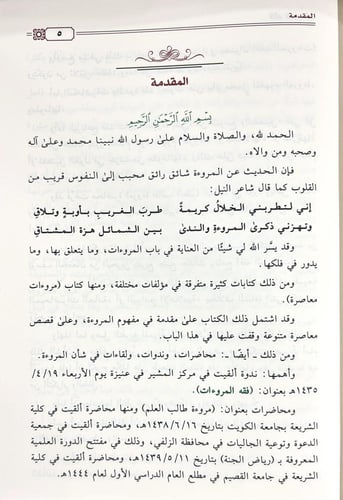 المقدمة
٥
المقدمة
بِسْمِ اللَّهِ الرَّحْمَنِ الرَّحِيمِ
الحمد لله، والصلاة والسلام على رسول الله نبينا محمد وعلى آله
وصحبه ومن والاه.
فإن الحديث عن المروءة شائق رائق محبب إلى النفوس قريب من
القلوب كما قال شاعر النيل:
إني لتطربني الخلال كريمةً طربَ الغريبِ بأوبةٍ وتلاقِ
وتهزني ذكرى المروءةِ والندى بين الشمائل هزة المشتاقِ
وقد يسَّر الله لي شيئًا من العناية في باب المروءات، وما يتعلق بها، وما
يدور في فلكها.
ومن ذلك كتابات كثيرة متفرقة في مؤلفات مختلفة، ومنها كتاب (مروءات
معاصرة).
وقد اشتمل ذلك الكتاب على مقدمة في مفهوم المروءة، وعلى قصص
معاصرة متنوعة وقفت عليها في هذا الباب.
ومن ذلك ـ أيضًا ـ: محاضرات، وندوات، ولقاءات في شأن المروءة.
وأهمها: ندوة ألقيت في مركز المشير في عنيزة يوم الأربعاء ٤/١٩/
١٤٣٥هـ بعنوان: (فقه المروءات).
ومحاضرات بعنوان: (مروءة طالب العلم) ومنها محاضرة ألقيت في كلية
الشريعة بجامعة الكويت بتاريخ ١٤٣٨/٦/١٦هـ، ومحاضرة ألقيت في جمعية
الدعوة وتوعية الجاليات في محافظة الزلفي، وذلك في مفتتح الدورة العلمية
المعروفة بـ (رياض الجنة) بتاريخ ١٤٣٩/٥/١١هـ، ومحاضرة ألقيت في كلية
الشريعة في جامعة القصيم في مطلع العام الدراسي الأول لعام ١٤٤٤هـ.